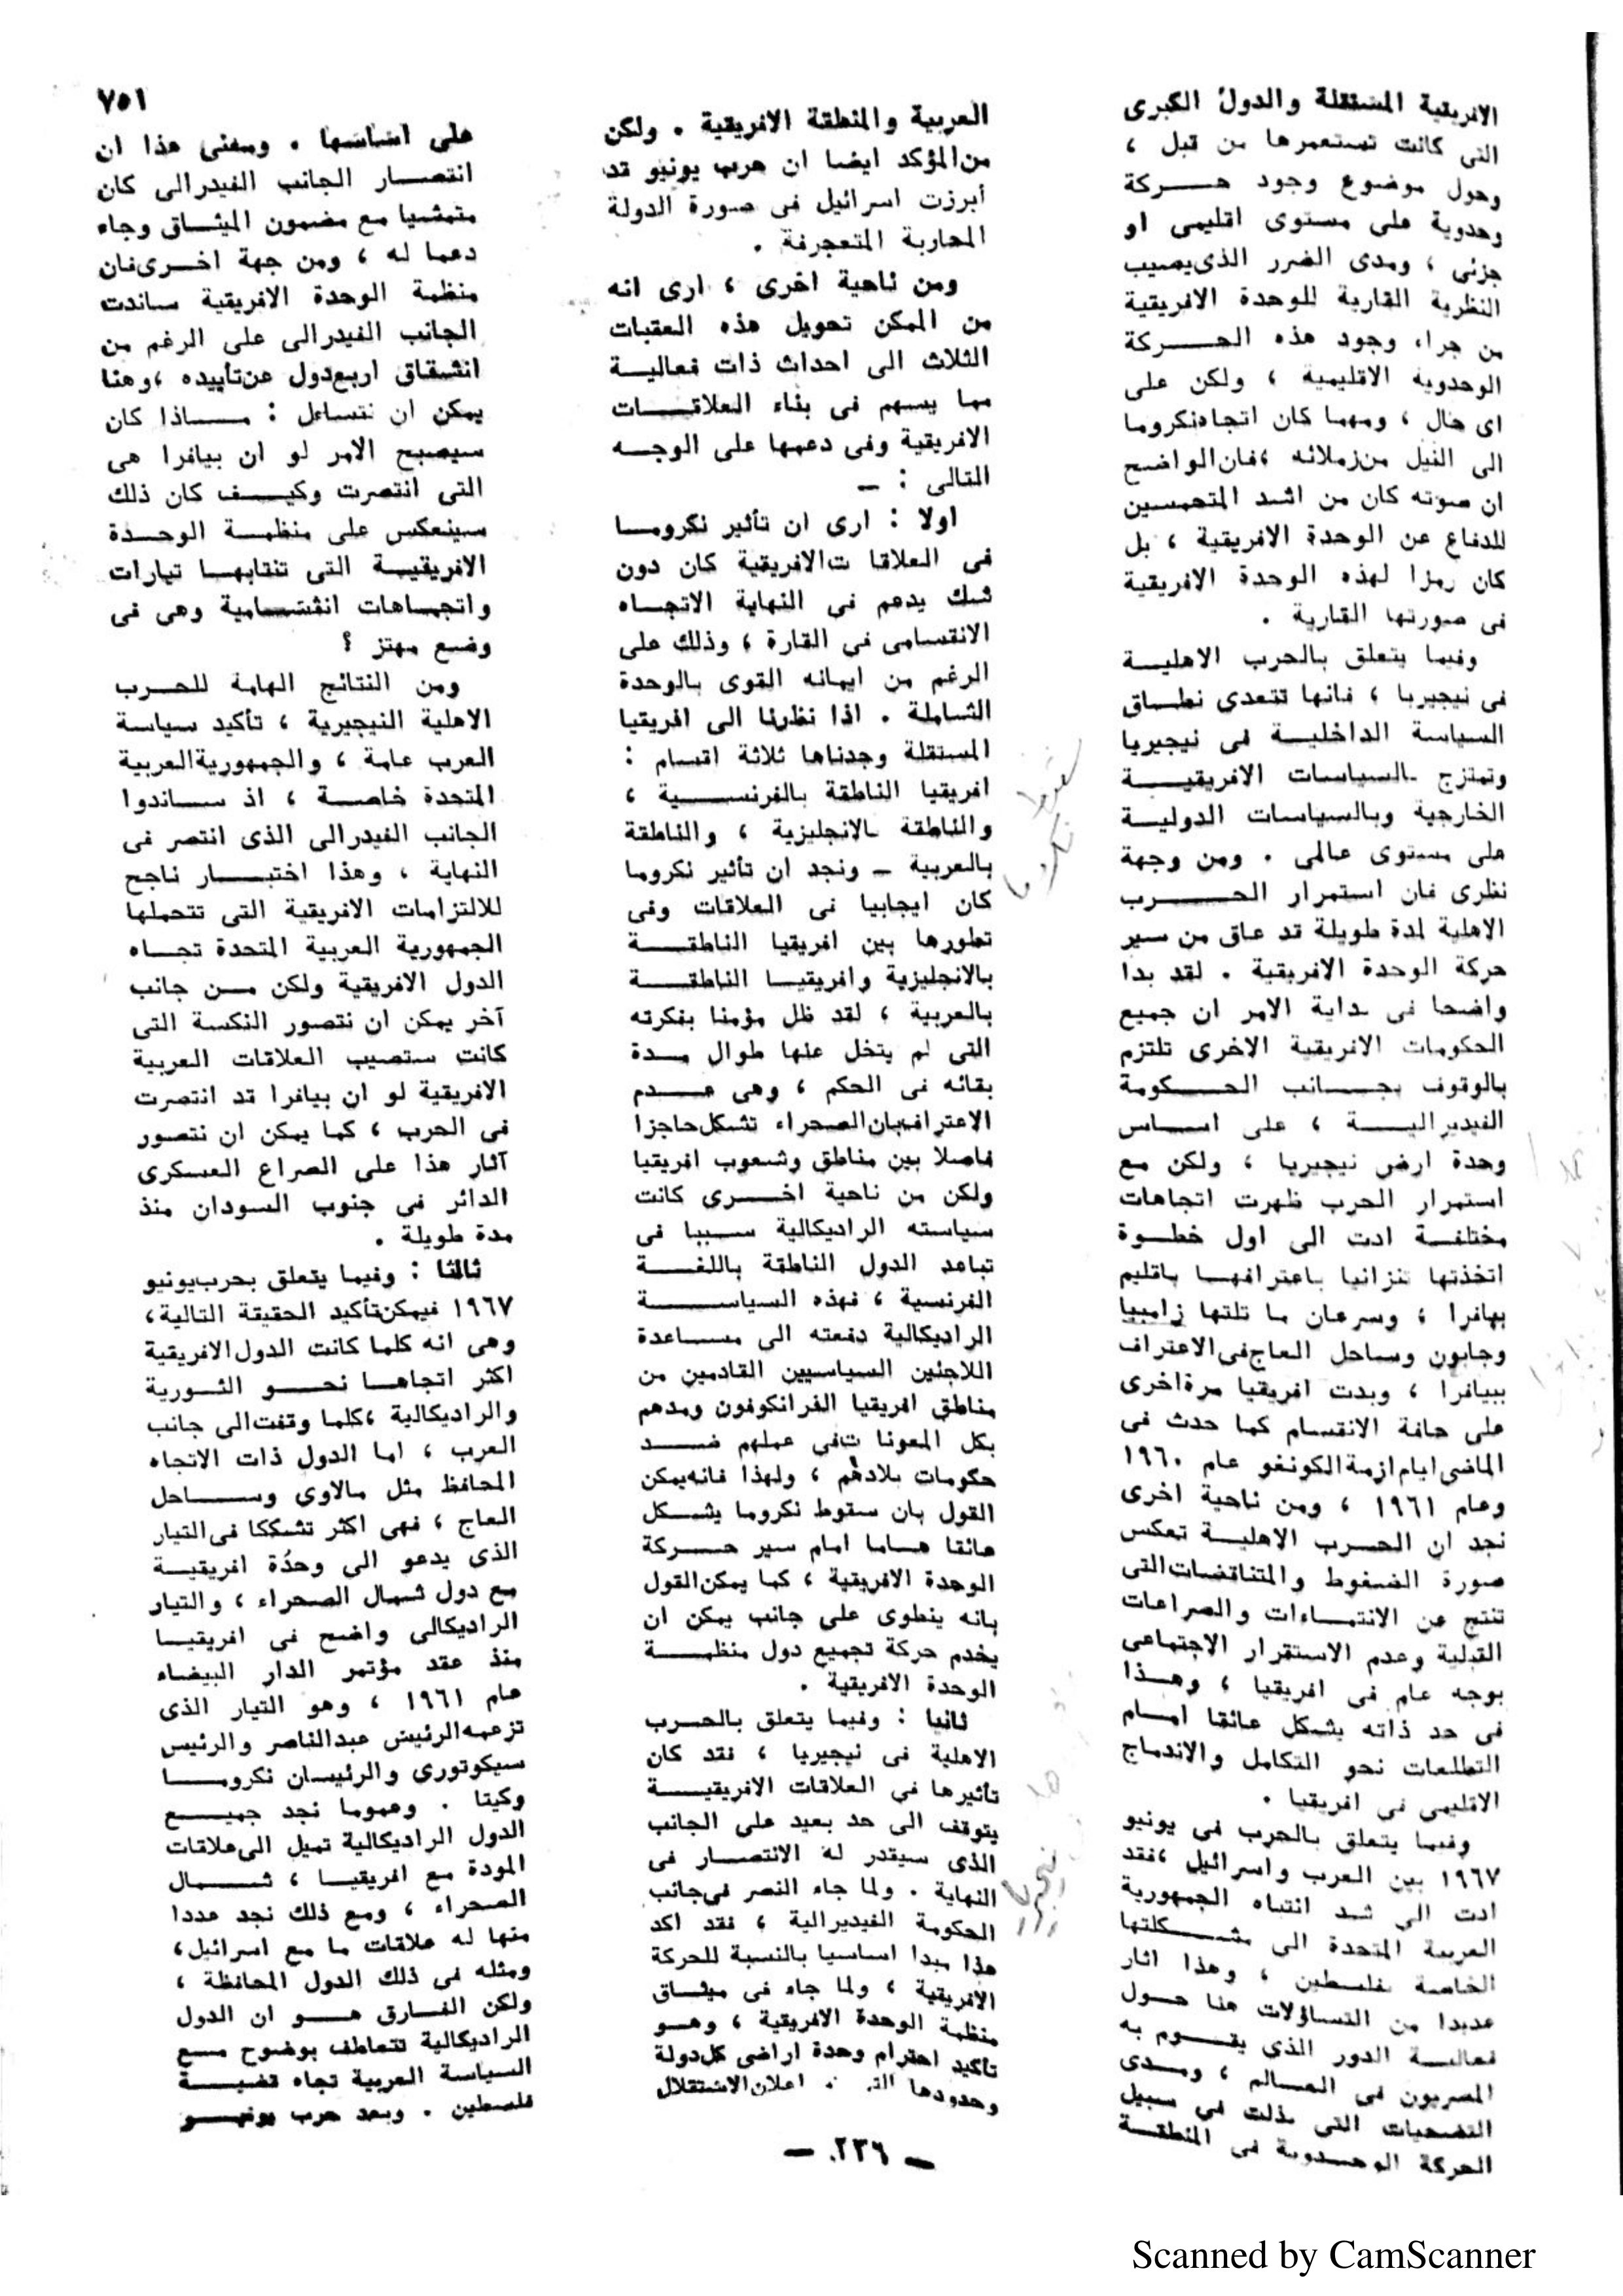 ٧٥١
الافريقية المستقلة والدول الكبرى
التى كانت تستعمرها من قبل ،
وحول موضوع وجود حركة
وحدوية على مستوى اقليمى او
جزئى ، ومدى الضرر الذى يصيب
النظرية القارية للوحدة الافريقية
من جراء وجود هذه الحركة
الوحدوية الاقليمية ، ولكن على
اى حال ، ومهما كان اتجاه نكروما
الى النيل من زملائه ، فان الواضح
ان صوته كان من اشد المتحمسين
للدفاع عن الوحدة الافريقية ، بل
كان رمزا لهذه الوحدة الافريقية
فى صورتها القارية .
وفيما يتعلق بالحرب الاهلية
فى نيجيريا ، فانها تتعدى نطاق
السياسة الداخلية فى نيجيريا
وتمتزج بالسياسات الافريقية
الخارجية وبالسياسات الدولية
على مستوى عالمى . ومن وجهة
نظرى فان استمرار الحرب
الاهلية لمدة طويلة قد عاق من سير
حركة الوحدة الافريقية . لقد بدا
واضحا فى بداية الامر ان جميع
الحكومات الافريقية الاخرى تلتزم
بالوقوف بجانب الحكومة
الفيديرالية ، على اساس
وحدة ارض نيجيريا ، ولكن مع
استمرار الحرب ظهرت اتجاهات
مختلفة ادت الى اول خطوة
اتخذتها تنزانيا باعترافها باقليم
بيافرا ، وسرعان ما تلتها زامبيا
وجابون وساحل العاج فى الاعتراف
ببيافرا ، وبدت افريقيا مرة اخرى
على حافة الانقسام كما حدث فى
الماضى ايام ازمة الكونغو عام ١٩٦٠
وعام ١٩٦١ ، ومن ناحية اخرى
نجد ان الحرب الاهلية تعكس
صورة الضغوط والمتناقضات التى
تنتج عن الانتماءات والصراعات
القبلية وعدم الاستقرار الاجتماعى
بوجه عام فى افريقيا ، وهذا
فى حد ذاته يشكل عائقا امام
التطلعات نحو التكامل والاندماج
الاقليمى فى افريقيا .
وفيما يتعلق بالحرب فى يونيو
١٩٦٧ بين العرب واسرائيل ، فقد
ادت الى شد انتباه الجمهورية
العربية المتحدة الى مشكلتها
الخاصة بفلسطين ، وهذا اثار
عديدا من التساؤلات هنا حول
فعالية الدور الذى يقوم به
المصريون فى العالم ، ومدى
التضحيات التى بذلت فى سبيل
الحركة الوحدوية فى المنطقة
العربية والمنطقة الافريقية . ولكن
من المؤكد ايضا ان حرب يونيو قد
أبرزت اسرائيل فى صورة الدولة
المحاربة المتعجرفة .
ومن ناحية اخرى ، ارى انه
من الممكن تحويل هذه العقبات
الثلاث الى احداث ذات فعالية
مما يسهم فى بناء العلاقات
الافريقية وفى دعمها على الوجه
التالى : —
اولا : ارى ان تأثير نكروما
فى العلاقا ت الافريقية كان دون
شك يدعم فى النهاية الاتجاه
الانقسامى فى القارة ، وذلك على
الرغم من ايمانه القوى بالوحدة
الشاملة . اذا نظرنا الى افريقيا
المستقلة وجدناها ثلاثة اقسام :
افريقيا الناطقة بالفرنسية ،
والناطقة بالانجليزية ، والناطقة
بالعربية — ونجد ان تأثير نكروما
كان ايجابيا فى العلاقات وفى
تطورها بين افريقيا الناطقة
بالانجليزية وافريقيا الناطقة
بالعربية ، لقد ظل مؤمنا بفكرته
التى لم يتخل عنها طوال مدة
بقائه فى الحكم ، وهى عدم
الاعتراف بان الصحراء تشكل حاجزا
فاصلا بين مناطق وشعوب افريقيا
ولكن من ناحية اخرى كانت
سياسته الراديكالية سببا فى
تباعد الدول الناطقة باللغة
الفرنسية ، فهذه السياسة
الراديكالية دفعته الى مساعدة
اللاجئين السياسيين القادمين من
مناطق افريقيا الفرانكوفون ومدهم
بكل المعونا ت فى عملهم ضد
حكومات بلادهم ، ولهذا فانه يمكن
القول بان سقوط نكروما يشكل
عائقا هاما امام سير حركة
الوحدة الافريقية ، كما يمكن القول
بانه ينطوى على جانب يمكن ان
يخدم حركة تجميع دول منظمة
الوحدة الافريقية .
ثانيا : وفيما يتعلق بالحرب
الاهلية فى نيجيريا ، فقد كان
تأثيرها فى العلاقات الافريقية
يتوقف الى حد بعيد على الجانب
الذى سيقدر له الانتصار فى
النهاية . ولما جاء النصر فى جانب
الحكومة الفيديرالية ، فقد اكد
هذا مبدا اساسيا بالنسبة للحركة
الافريقية ، ولما جاء فى ميثاق
منظمة الوحدة الافريقية ، وهو
تاكيد احترام وحدة اراضى كل دولة
وحدودها اعلان الاستقلال
على اساسها . ومعنى هذا ان
انتصار الجانب الفيدرالى كان
متمشيا مع مضمون الميثاق وجاء
دعما له ، ومن جهة اخرى فان
منظمة الوحدة الافريقية ساندت
الجانب الفيدرالى على الرغم من
انشقاق اربع دول عن تأييده ، وهنا
يمكن ان نتساءل : ماذا كان
سيصبح الامر لو ان بيافرا هى
التى انتصرت وكيف كان ذلك
سينعكس على منظمة الوحدة
الافريقية التى تنتابها تيارات
واتجاهات انقسامية وهى فى
وضع مهتز ؟
ومن النتائج الهامة للحرب
الاهلية النيجيرية ، تأكيد سياسة
العرب عامة ، والجمهورية العربية
المتحدة خاصة ، اذ ساندوا
الجانب الفيدرالى الذى انتصر فى
النهاية ، وهذا اختبار ناجح
للالتزامات الافريقية التى تتحملها
الجمهورية العربية المتحدة تجاه
الدول الافريقية ولكن من جانب
آخر يمكن ان نتصور النكسة التى
كانت ستصيب العلاقات العربية
الافريقية لو ان بيافرا قد انتصرت
فى الحرب ، كما يمكن ان نتصور
آثار هذا على الصراع العسكرى
الدائر فى جنوب السودان منذ
مدة طويلة .
ثالثا : وفيما يتعلق بحرب يونيو
١٩٦٧ فيمكن تأكيد الحقيقة التالية ،
وهى انه كلما كانت الدول الافريقية
اكثر اتجاها نحو الثورية
والراديكالية ، كلما وقفت الى جانب
العرب ، اما الدول ذات الاتجاه
المحافظ مثل مالاوى وساحل
العاج ، فهى اكثر تشككا فى التيار
الذى يدعو الى وحدة افريقية
مع دول شمال الصحراء ، والتيار
الراديكالى واضح فى افريقيا
منذ عقد مؤتمر الدار البيضاء
عام ١٩٦١ ، وهو التيار الذى
تزعمه الرئيس عبد الناصر والرئيس
سيكوتورى والرئيسان نكروما
وكيتا . وعموما نجد جميع
الدول الراديكالية تميل الى علاقات
المودة مع افريقيا ، شمال
الصحراء ، ومع ذلك نجد عددا
منها له علاقات ما مع اسرائيل ،
ومثله فى ذلك الدول المحافظة ،
ولكن الفارق هو ان الدول
الراديكالية تتعاطف بوضوح مع
السياسة العربية تجاه قضية
فلسطين . وبعد حرب يونيو
— ٢٣٦ —
Scanned by CamScanner